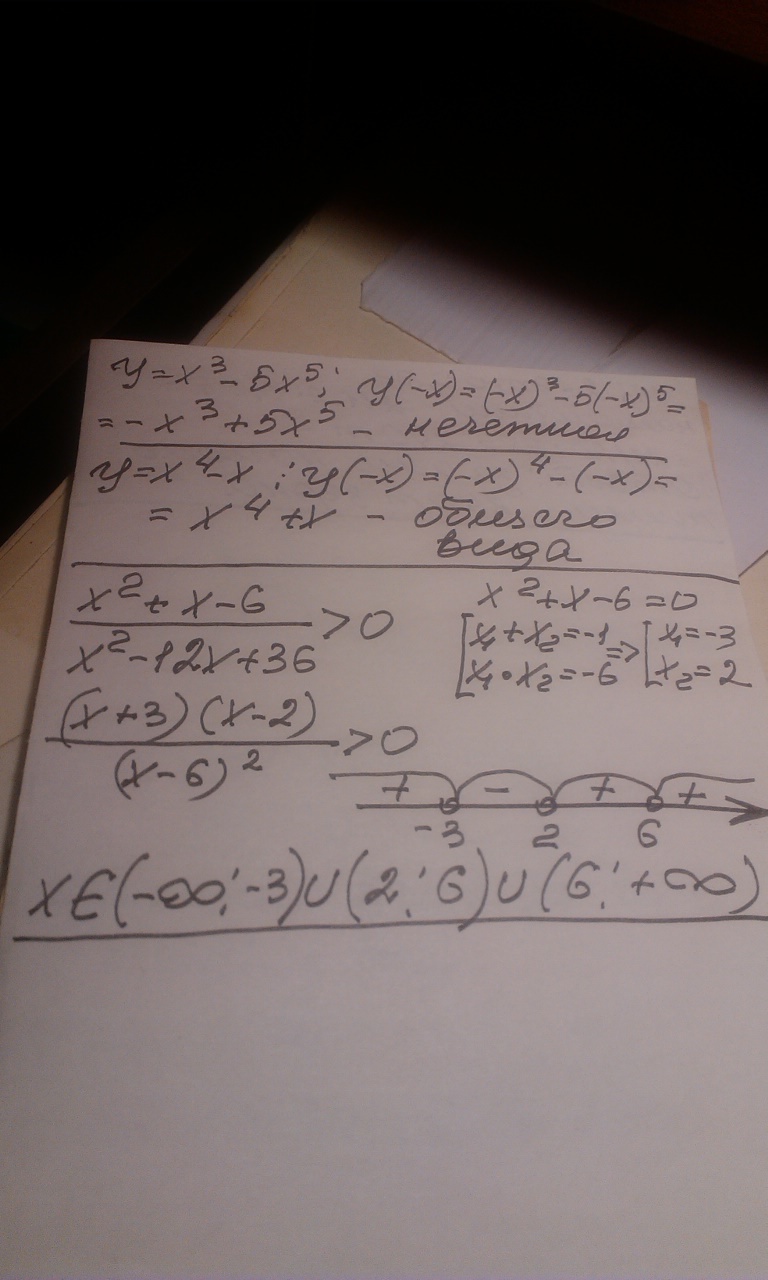 y=x³-5x⁵; y(-x)=(-x)³-5(-x)⁵=
=-x³+5x⁵- нечетная
y=x⁴-x; y(-x)=(-x)⁴-(-x)=
=x⁴+x - общего
вида
x²+x-6
x²-12x+36 >0
x²+x-6=0
[x₁+x₂=-1 => [x₁=-3
[x₁·x₂=-6 [x₂=2
(x+3)(x-2)
(x-6)² >0
+ - + +
-3 2 6
x∈(-∞;-3)∪(2;6)∪(6;+∞)